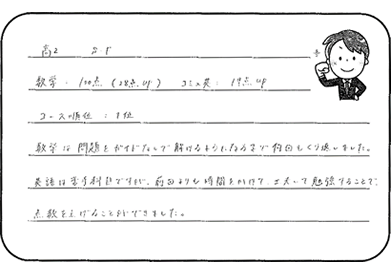 高2 S.F
数学：100点（28点up） コミュ英：19点up
コース順位：1位
数学は問題をガイドなしで解けるようになるまで何回もくり返しました。
英語は苦手科目ですが、前回よりも時間をかけて、工夫して勉強することで、
点数を上げることができました。